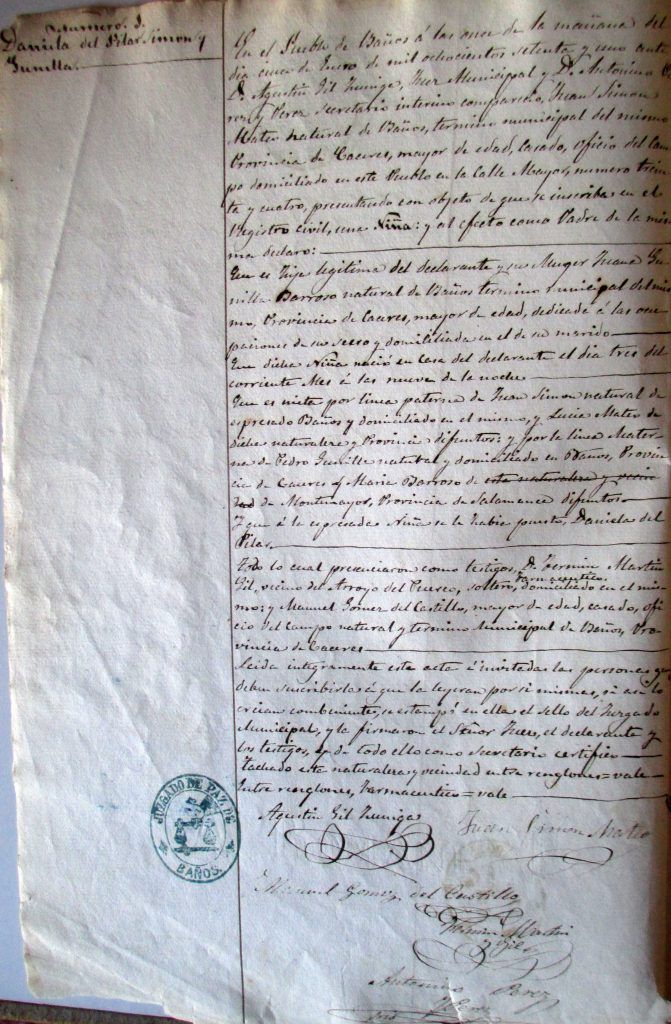 Numero. 3.
Daniela del Pilar Simon y
Gunilla.
En el Pueblo de Baños á las once de la mañana del
dia cinco de Enero de mil ochocientos setenta y uno ante
D. Agustin Gil Zuniga, Juez Municipal y D. Antonino
y Perez secretario interino comparecio, Juan Simon
Mateo natural de Baños, termino municipal del mismo
Provincia de Caceres, mayor de edad, casado, oficio del Cam
po domiciliado en este Pueblo en la Calle Mayor, numero trein
ta y cuatro, presentando con objeto de que se inscriba en el
Registro civil, una Niña: y al efecto como Padre de la mis
ma declaro:
Que es hija legitima del declarante y su Muger Juana Gu
nilla Barroso natural de Baños termino municipal del mis
mo, Provincia de Caceres, mayor de edad, dedicada á las ocu
paciones de su sexo y domiciliada en el de su marido
Que dicha Niña nació en Casa del declarante el dia tres del
corriente Mes á las nueve de la noche
Que es nieta por linea paterna de Juan Simon natural de
espresado Baños y domiciliado en el mismo, y Lucia Mateo de
dicha naturaleza y Provincia difuntos: y por la linea Mater
na de Pedro Gunilla natural y domiciliado en Baños, Provin
cia de Caceres y Maria Barroso de esta naturaleza y vecin
dad de Montemayor, Provincia de Salamanca difuntos
Y que á la espresada Niña se la habia puesto, Daniela del
Pilar.
Todo lo cual presenciaron como testigos, D. Fermin Martin
Farmaceutico
Gil, vecino del Arroyo del Puerco, soltero, domiciliado en el mis
mo: y Manuel Gomez del Castillo, mayor de edad, casado, ofi
cio del Campo natural y termino Municipal de Baños, Pro
vincia de Caceres
Leida integramente esta acta é invitadas las personas que
deben suscribirla á que la leyeran por si mismas, si asi lo
creian combeniente, se estampó en ella el sello del Juzgado
Municipal, y la firmaron el Señor Juez, el declarante y
los testigos, y de todo ello como secretario certifico
Tachado esta naturaleza y vecindad entre renglones = vale
Entre renglones, Farmaceutico = vale
Agustin Gil Zuniga
Juan Simon Mateo
JUZGADO DE PAZ DE
BAÑOS.
Manuel Gomez del Castillo
Fermin Martin
y Gil
Antonino Perez